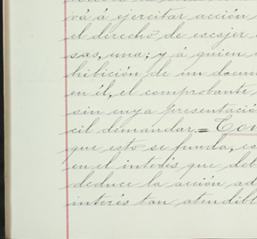 vá á ejercitar acción
el derecho de escojer
sas, una; y á quien
hibición de un docum
en él, el comprobante
sin cuya presentació
cil demandar = Con
que esto se funda, es
en el interés que del
deduce la acción ad
interés tan atendibl